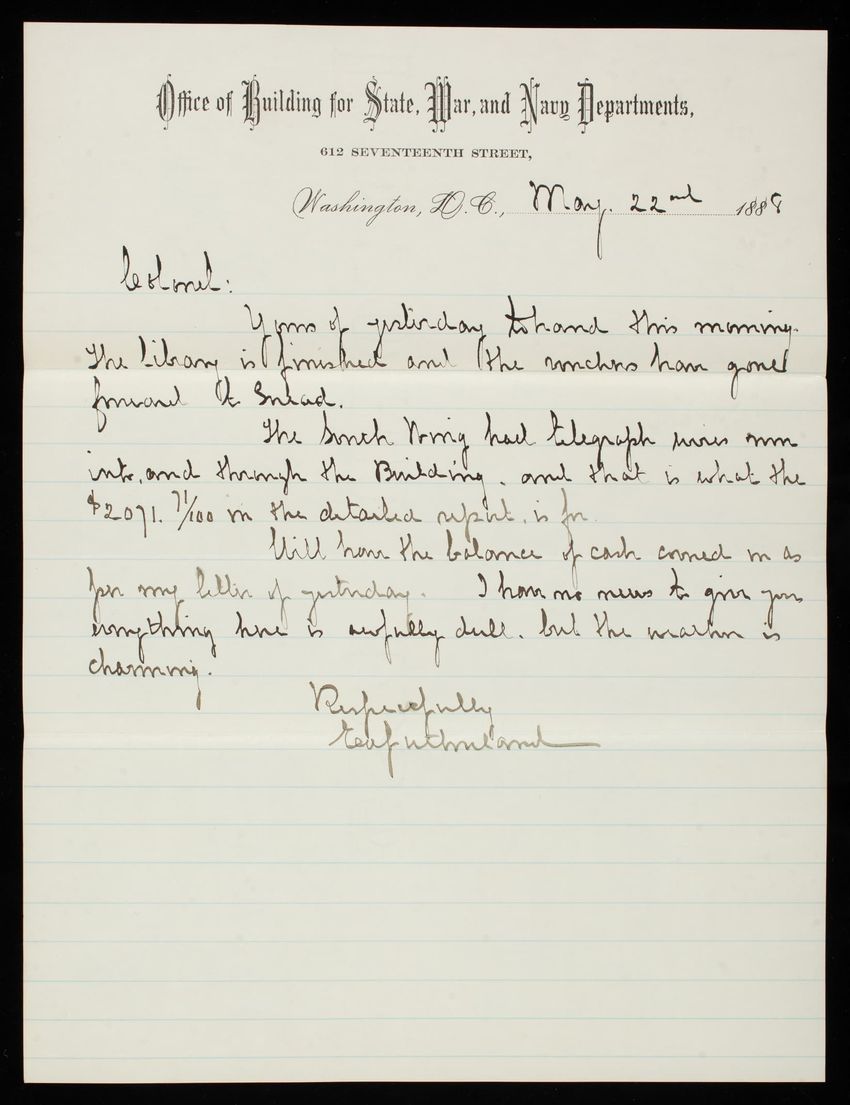 Office of Building for State, War, and Navy Departments,
612 SEVENTEENTH STREET,
Washington, D.C., May. 22nd 1888
Colonel:
Yours of yesterday to hand this morning.
The Library is finished and the vouchers have gone
forward to Snead.
The South Wing had telegraph wires run
into, and through the Building, and that is what the
$2071. 71/100 in the detailed report, is for.
Will have the balance of cash covered in as
per my letter of yesterday. I have no news to give you
everything here is awfully dull, but the weather is
charming.
Respectfully